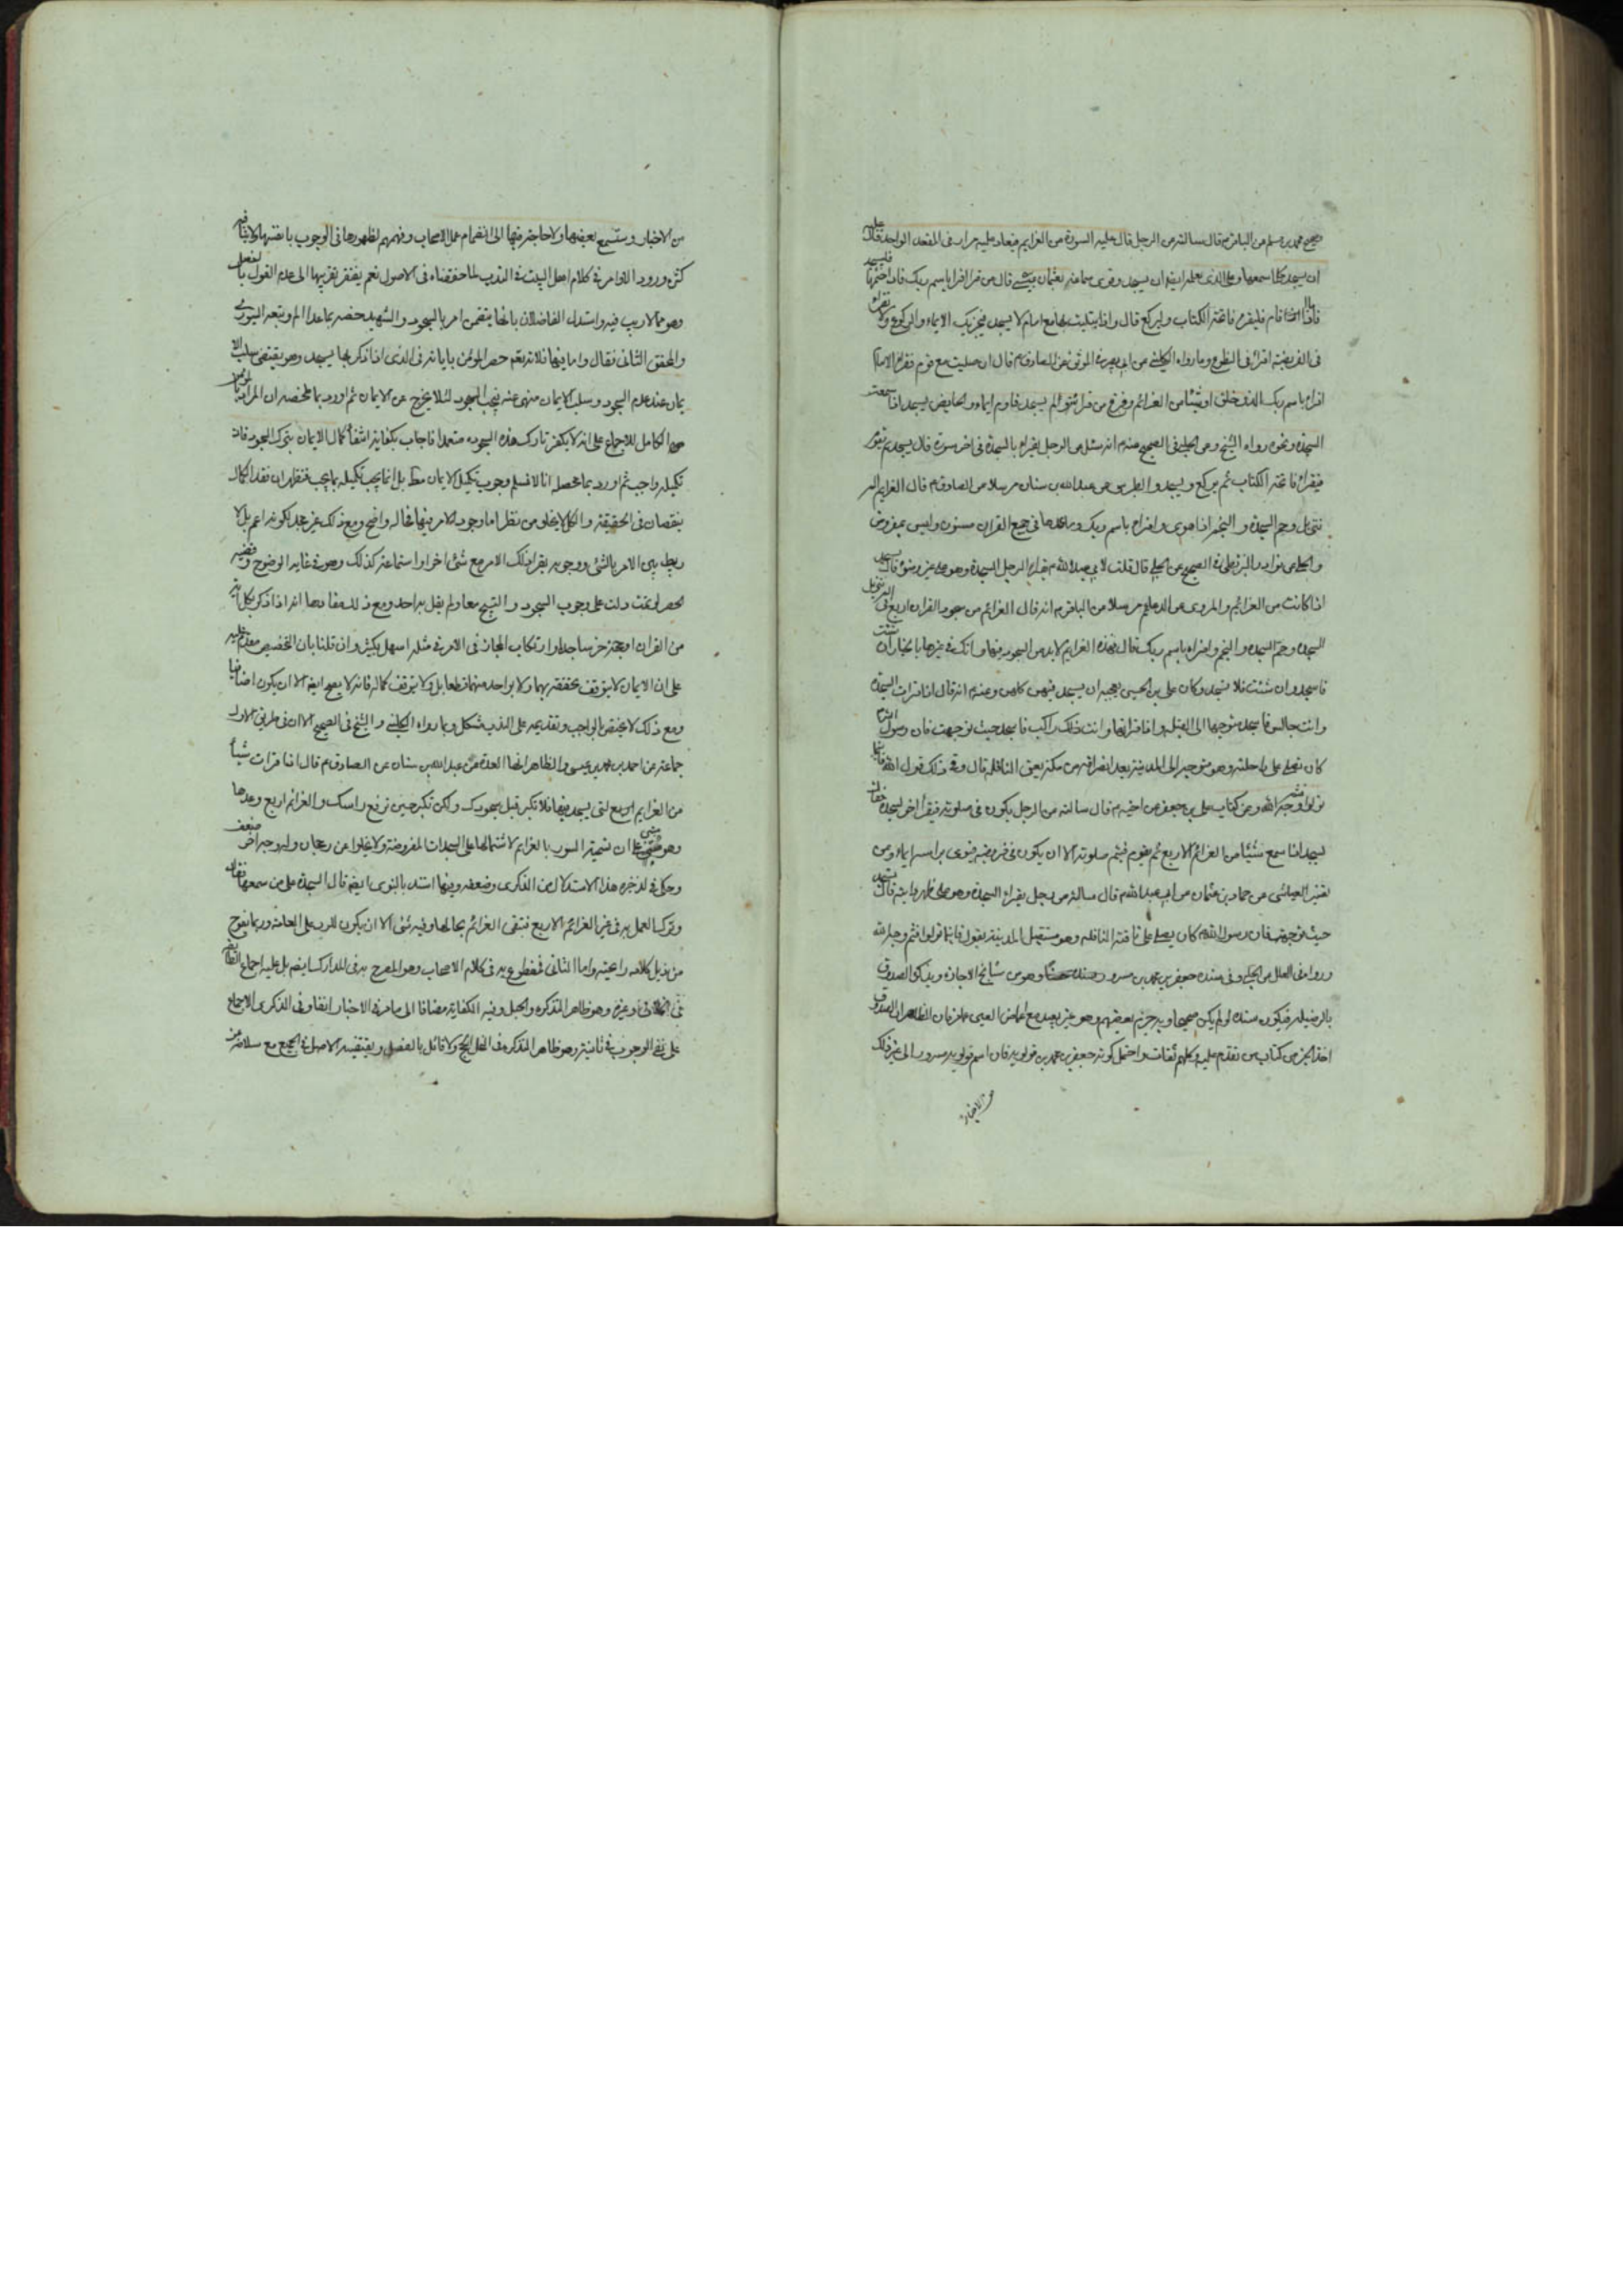 صحيح محمد بن مسلم عن الباقر م قال سالته عن الرجل قال عليه السورة من العزايم فيعاد عليه مرارا فى المقعد الواحد قال عليه
ان يسجد كلما سمعها وعلى الذى يعلمه ايضا ان يسجد وقوى سماعه بعثمان بن عيسى قال من قرا اقرا باسم ربك فاذا ختمها فليسجد
فاذا قام فليقرء فاتحة الكتاب وليركع قال واذا ابتليت بها مع امام لا يسجد فيجزيك الايماء والركوع ولا تقراء
فى الفريضة اقراء فى التطوع وما رواه الكلينى عن ابى بصير فى الموثق عن الصادق م قال ان صليت مع قوم فقراء الامام
اقراء باسم ربك الذى خلق او شيئا من العزائم وفرغ من قرائته ولم يسجد فاوم ايماء والحايض يسجد اذا سمعت
السجدة ونحوه رواه الشيخ وعن الحلبى فى الصحيح عنه م انه سئل عن الرجل يقراء بالسجدة فى اخر سورة قال يسجد ثم يقوم
فيقراء فاتحة الكتاب ثم يركع ويسجد والطبرسى عن عبدالله بن سنان مرسلا عن الصادق م قال العزايم الم
تنزيل وحم السجدة والنجم اذا هوى واقراء باسم ربك وما عداها فى جميع القران مسنون وليس بمفروض
والحلى من نوادر البزنطى فى الصحيح عن الحلبى قال قلت لابى عبدالله م يقراء الرجل السجدة وهو على غير وضوء قال يسجد
اذا كانت من العزائم والمروى عن الدعايم مرسلا عن الباقر م انه قال العزائم من سجود القران اربع فى الم تنزيل
السجدة وحم السجدة والنجم واقراء باسم ربك قال فهذه العزايم لا بد من السجود فيها وانك فى غيرها بالخيار ان شئت
فاسجد وان شئت فلا تسجد وكان على بن الحسين يعجبه ان يسجد فيهن كلهن وعنه م انه قال اذا قرات السجدة
وانت جالس فاسجد متوجها الى القبلة واذا قراتها وانت راكب فاسجد حيث توجهت فان رسول الله م
كان يصلى على راحلته وهو متوجه الى المدينة بعد انصرافه من مكة يعنى النافلة قال وفى ذلك قول الله فاينما
تولوا فثم وجه الله وعن كتاب على بن جعفر عن اخيه م قال سالته عن الرجل يكون فى صلوته فيقرأ اخر السجدة فقال
يسجد اذا سمع شيئا من العزائم الاربع ثم يقوم فيتم صلوته الا ان يكون فى فريضة فيومى براسه ايماء وعن
تفسير العياشى عن حماد بن عثمان عن ابى عبدالله م قال سالته عن رجل يقراء السجدة وهو على ظهر دابته قال يسجد
حيث توجهت فان رسول الله م كان يصلى على ناقته النافلة وهو مستقبل المدينة يقول فاينما تولوا فثم وجه الله
ورواه فى العلل عن الحلبى وفى سنده جعفر بن محمد بن مسرور وهو من شايخ الاجازة ويذكره الصدوق
بالرضيلة فيكون سنده لو لم يكن صحيحا وبه جزم بعضهم وهو غير بعيد مع اغماض العين عما مر فان الظاهر ان الصدوق
اخذ الخبر من كتاب من تقدم عليه وكلهم ثقات واحتمل كونه جعفر بن محمد بن قولويه فان اسم قولويه مسرور الى غير ذلك
من الاخبار
من الاخبار وستسمع بعضها ولا حاجة فيها الى انضمام عمل الاصحاب وفهمهم لظهورها فى الوجوب بانفسها ولا ينافيه
كثرة ورود الاوامر فى كلام اهل البيت فى الندب لما حققناه فى الاصول نعم يفتقر تقريبها الى عدم القول بالفصل
وهو مما لا ريب فيه واستدل الفاضلان بانها يتضمن امر بالسجود والشهيد خصه بماعدا الم وتبعه السيورى
والمحقق الثانى فقال واما فيها فلانه تعم حصر المؤمن باياته فى الذى اذا ذكر بها يسجد وهو يقتضى سلب الا
يمان عند عدم السجود وسلب الايمان منهى عنه فيجب السجود لئلا يخرج عن الايمان ثم اورد بما ملخصه ان المراد بالمؤمن
هو الكامل للاجماع على انه لا يكفر تارك هذه السجود متعمدا فاجاب بكفاية انتفاء كمال الايمان بترك السجود فان
تكميله واجب ثم اورد بما محصله انا لا نسلم وجوب تكميل الايمان مط بل انما يجب تكميله بما يجب فتقول ان فقد الكمال
نقصان فى الحقيقة والكل لا يخلو من نظر اما وجود الامر فيها فحاله واضح ومع ذلك غير مجد لكونه اعم بل لا
ربط بين الامر بالشئ ووجوبه بقراءة ذلك الامر مع شئ اخر او استماعه كذلك وهو فى غاية الوضوح وقضيه
الحصر لو تمت دلت على وجوب السجود والتسبيح معا ولم يقل به احد ومع ذلك مفادها انه اذا ذكر بكل اية
من القران او بعضه خر ساجدا وارتكاب المجاز فى الامر فى مثله اسهل بكثير وان قلنا بان التخصيص مقدم عليه
على ان الايمان لا يتوقف تحققه بهما ولا بواحد منهما قطعا بل ولا يتوقف كماله فانه لا يصح ايضا الا ان يكون اضافيا
ومع ذلك لا يختص بالواجب وتقديمه على الندب مشكل وبما رواه الكلينى والشيخ فى الصحيح الا ان فى طريق الاول
جماعة عن احمد بن محمد بن عيسى والظاهر انها العدة عن عبدالله بن سنان عن الصادق م قال اذا قرات شيئاً
من العزايم الاربع التى يسجد فيها فلا تكبر قبل سجودك ولكن تكبر حين ترفع راسك والعزائم اربع وعدها
وهو مبنى على ان تسمية السور بالعزايم لاشتمالها على السجدات المفروضة ولا يخلوا من رجحان وله وجه اخر ضعف
وحكى فى الذخيرة هذا الاستدلال من الذكرى وضعفه وفيها استند بالنبوى ايضا قال السجدة على من سمعها فقال
وترك العمل به فى غير العزائم الاربع فتبقى العزائم بحالها وفيه شئ الا ان يكون للرد على العامة وربما يلوح
من ذيل كلامه راعيته واما الثانى فمقطوع به فى كلام الاصحاب وهو المصرح به فى المدارك ايضا بل عليه اجماع اصحابنا
فى الخلاف وغيره وهو ظاهر التذكرة والحبل وفيه الكفاية مضافا الى ما مر فى الاخبار اتفاقا وفى الذكرى الاجماع
على نفى الوجوب فى ثامنيتها وهو ظاهر التذكرة فى النحل الحج ولا قائل بالفصل ويقتضيه الاصل فى الجميع مع سلامته عن